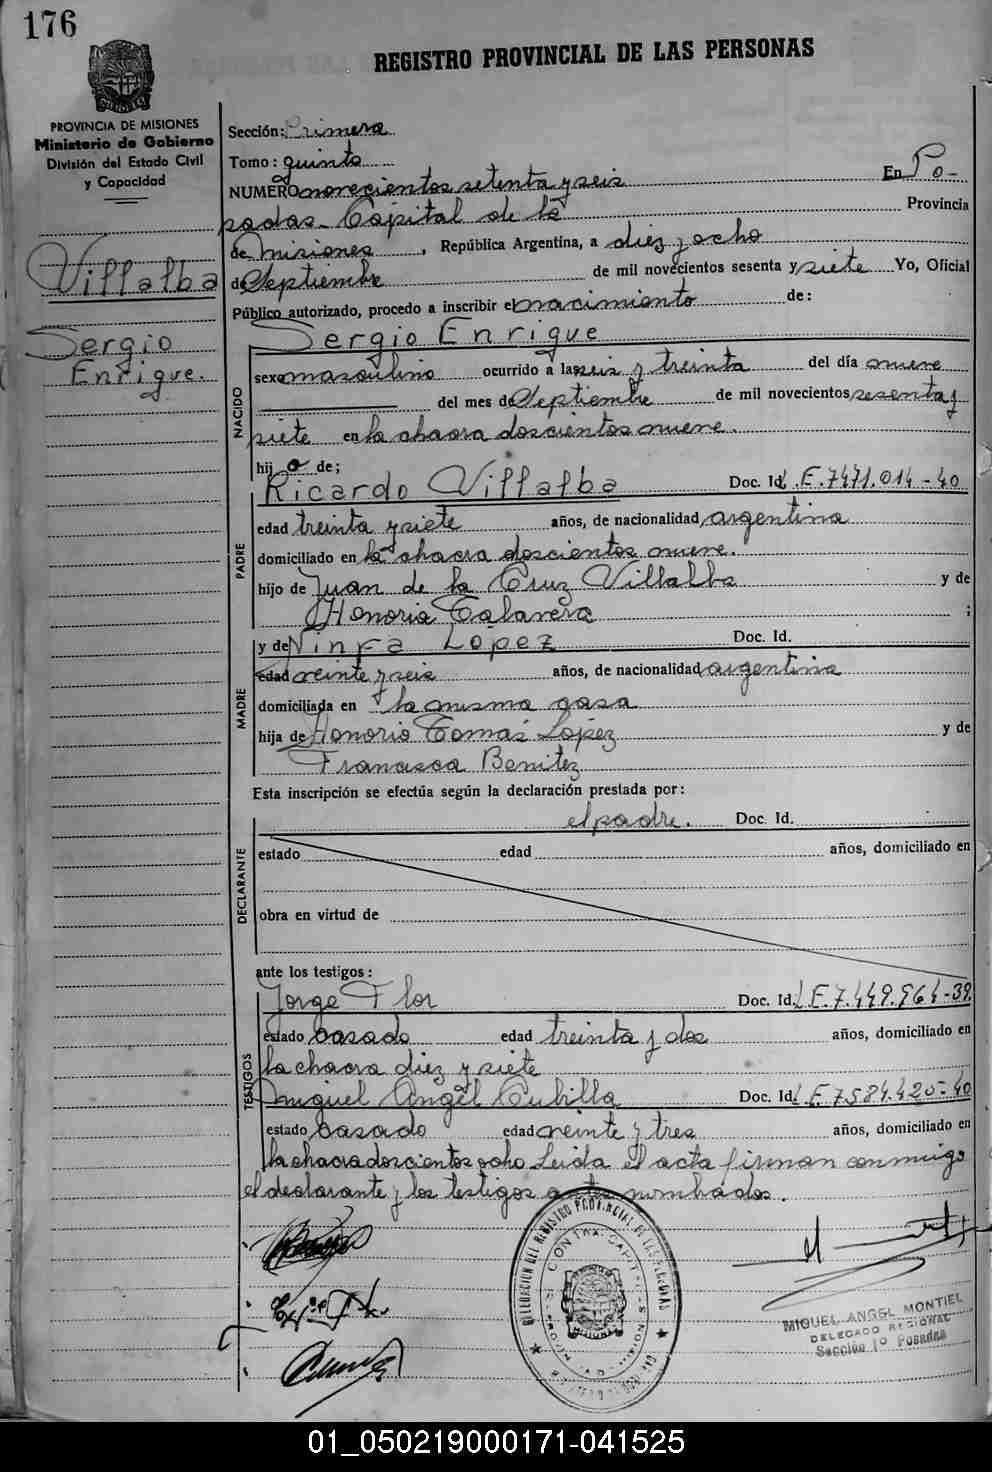 176
REGISTRO PROVINCIAL DE LAS PERSONAS
PROVINCIA DE MISIONES
Ministerio de Gobierno
División del Estado Civil
y Capacidad
Villalba
Sergio
Enrique.
Sección: Primera
Tomo: quinto
NUMERO novecientos setenta y seis En Po-
sadas - Capital de la Provincia
de Misiones, República Argentina, a diez y ocho
de Septiembre de mil novecientos sesenta y siete Yo, Oficial
Público autorizado, procedo a inscribir el nacimiento de:
NACIDO
Sergio Enrique
sexo masculino ocurrido a las seis y treinta del día nueve
del mes de Septiembre de mil novecientos sesenta y
siete en la chacra doscientos nueve.
hijo de;
PADRE
Ricardo Villalba Doc. Id. L.E. 7471.014-40
edad treinta y siete años, de nacionalidad argentina
domiciliado en la chacra doscientos nueve.
hijo de Juan de la Cruz Villalba y de
Honoria Talavera ;
MADRE
y de Ninfa Lopez Doc. Id.
edad veinte y seis años, de nacionalidad argentina
domiciliada en la misma casa
hija de Honorio Tomás López y de
Francisca Benitez
Esta inscripción se efectúa según la declaración prestada por:
el padre. Doc. Id.
DECLARANTE
estado edad años, domiciliado en
obra en virtud de
ante los testigos:
TESTIGOS
Jorge Flor Doc. Id. L.E. 7.449.964-39
estado casado edad treinta y dos años, domiciliado en
la chacra diez y siete
Miguel Angel Cubilla Doc. Id. L.E. 7584.420-40
estado casado edad veinte y tres años, domiciliado en
la chacra doscientos ocho Leida el acta firman conmigo
el declarante y los testigos antes nombrados.
MIGUEL ANGEL MONTIEL
DELEGADO REGIONAL
Sección 1º Posadas
01_050219000171-041525